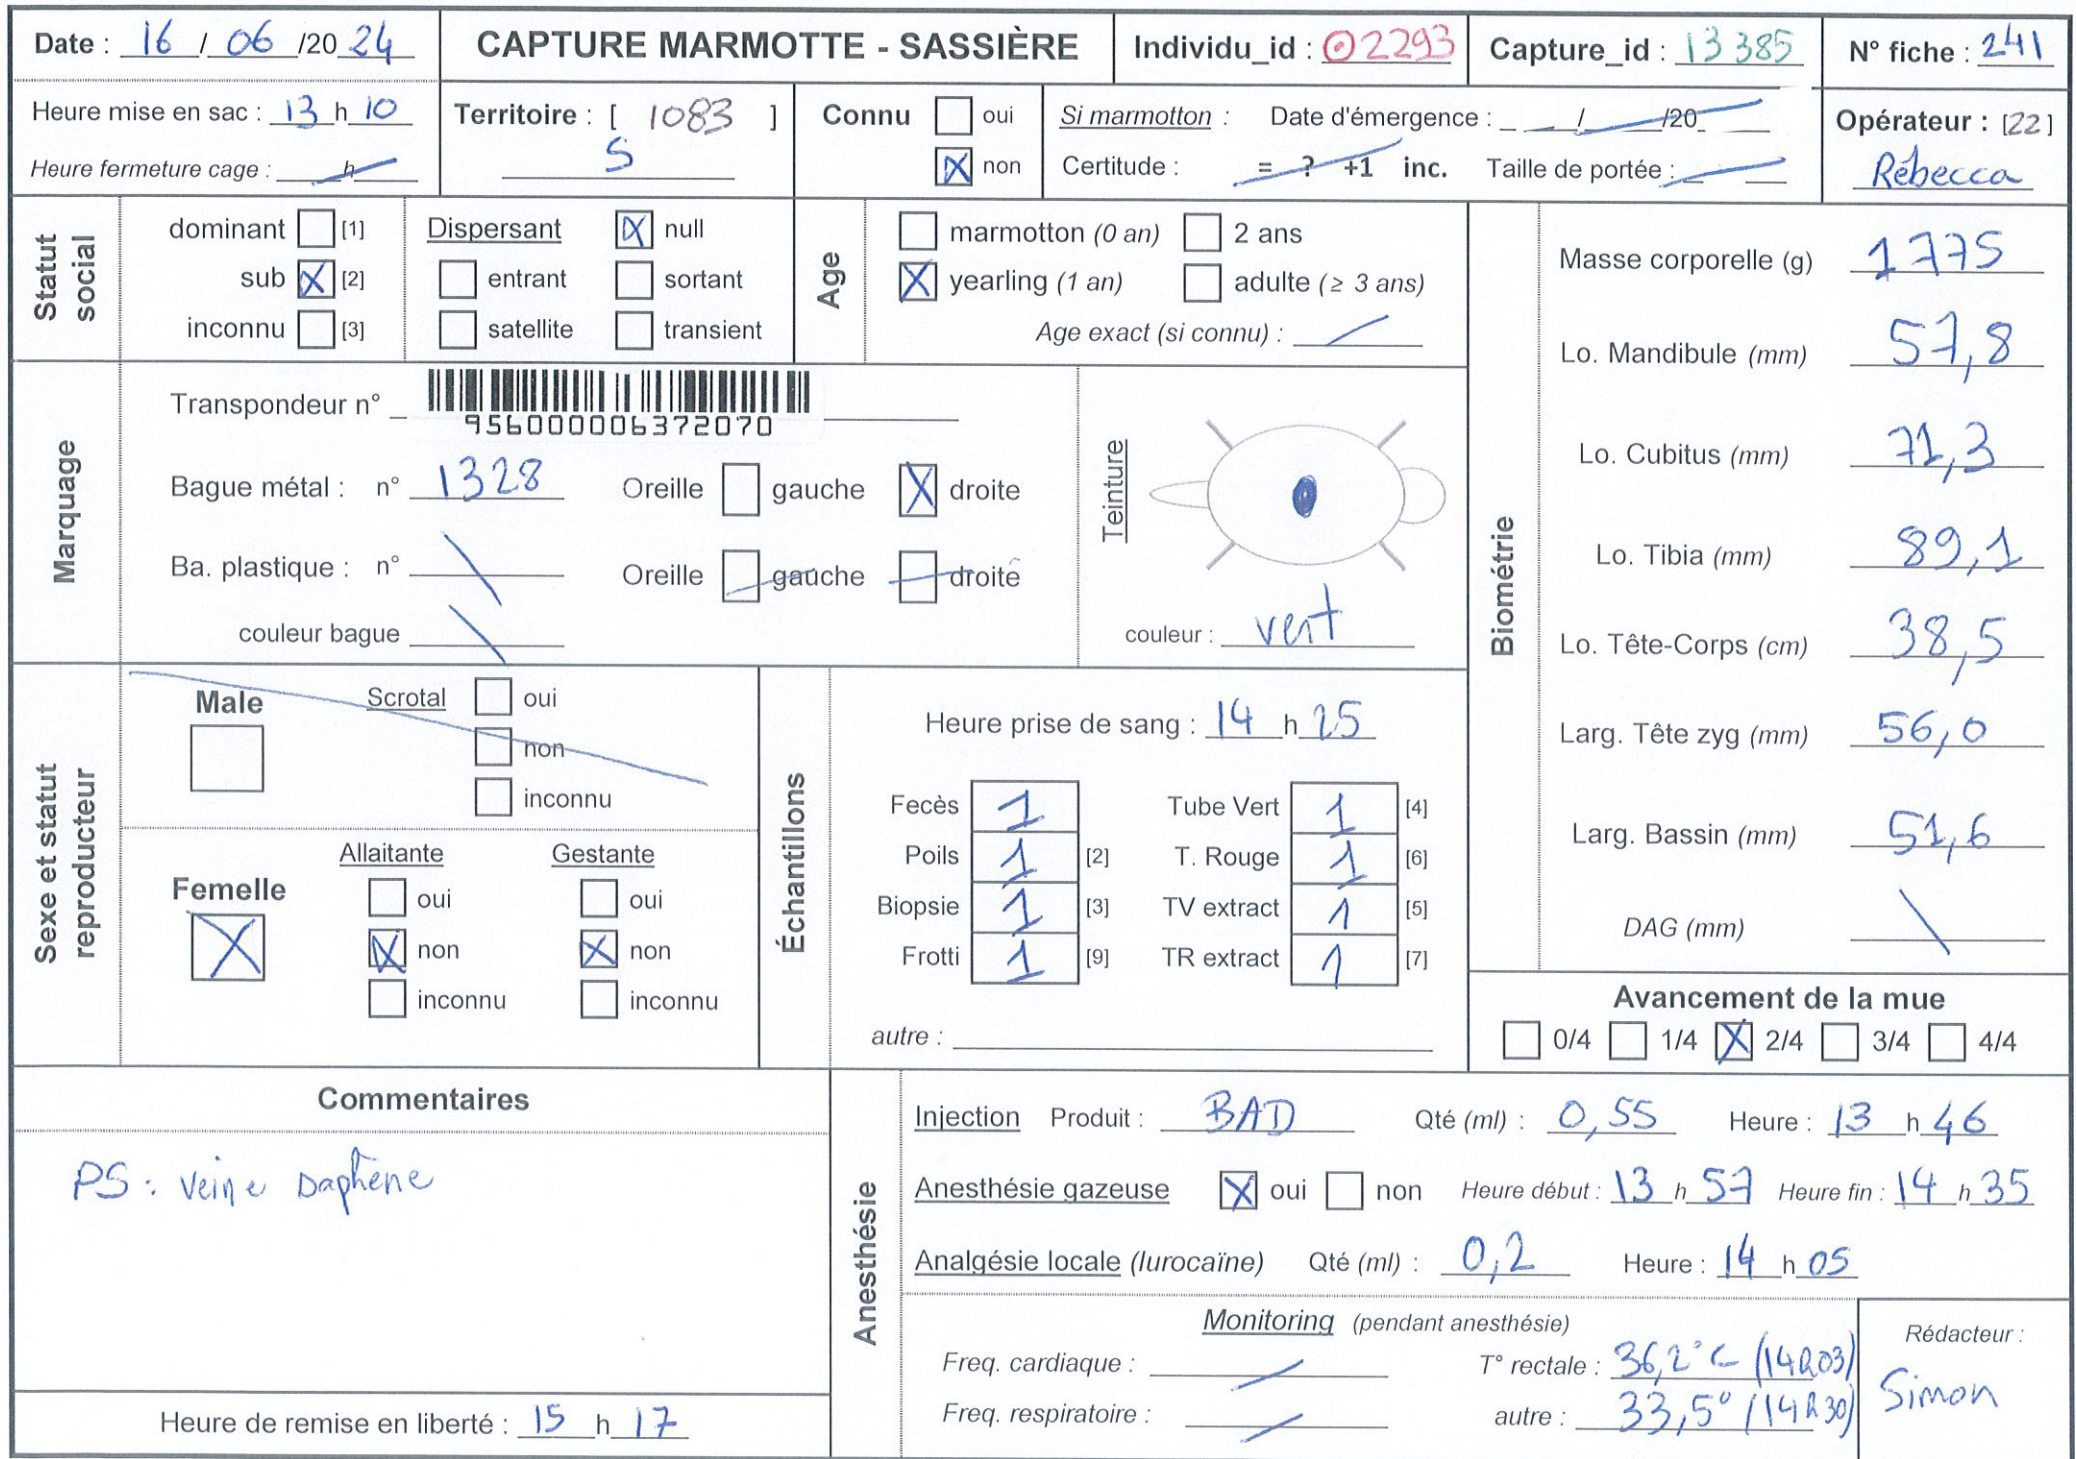 Date : 16 / 06 /20 24
CAPTURE MARMOTTE - SASSIÈRE
Individu_id : 02293
Capture_id : 13385
N° fiche : 241
Heure mise en sac : 13 h 10
Heure fermeture cage : h
Territoire : [ 1083 ]
S
Connu oui
non
Si marmotton : Date d'émergence : / /20
Certitude : = ? +1 inc. Taille de portée :
Opérateur : [22]
Rébecca
Statut social
dominant [1]
sub [2]
inconnu [3]
Dispersant null
entrant sortant
satellite transient
Age
marmotton (0 an) 2 ans
yearling (1 an) adulte (≥ 3 ans)
Age exact (si connu) :
Marquage
Transpondeur n°
956000006372070
Bague métal : n° 1328 Oreille gauche droite
Ba. plastique : n° Oreille gauche droite
couleur bague
Teinture
couleur : vert
Biométrie
Masse corporelle (g) 1775
Lo. Mandibule (mm) 57,8
Lo. Cubitus (mm) 71,3
Lo. Tibia (mm) 89,1
Lo. Tête-Corps (cm) 38,5
Larg. Tête zyg (mm) 56,0
Larg. Bassin (mm) 51,6
DAG (mm)
Sexe et statut reproducteur
Male
Scrotal oui
non
inconnu
Femelle
Allaitante Gestante
oui oui
non non
inconnu inconnu
Échantillons
Heure prise de sang : 14 h 25
Fecès 1 Tube Vert 1 [4]
Poils 1 [2] T. Rouge 1 [6]
Biopsie 1 [3] TV extract 1 [5]
Frotti 1 [9] TR extract 1 [7]
autre :
Avancement de la mue
0/4 1/4 2/4 3/4 4/4
Commentaires
PS : veine Daphène
Heure de remise en liberté : 15 h 17
Anesthésie
Injection Produit : BAD Qté (ml) : 0,55 Heure : 13 h 46
Anesthésie gazeuse oui non Heure début : 13 h 57 Heure fin : 14 h 35
Analgésie locale (lurocaïne) Qté (ml) : 0,2 Heure : 14 h 05
Monitoring (pendant anesthésie)
Freq. cardiaque : T° rectale : 36,2°C (14h03)
Freq. respiratoire : autre : 33,5° (14h30)
Rédacteur :
Simon